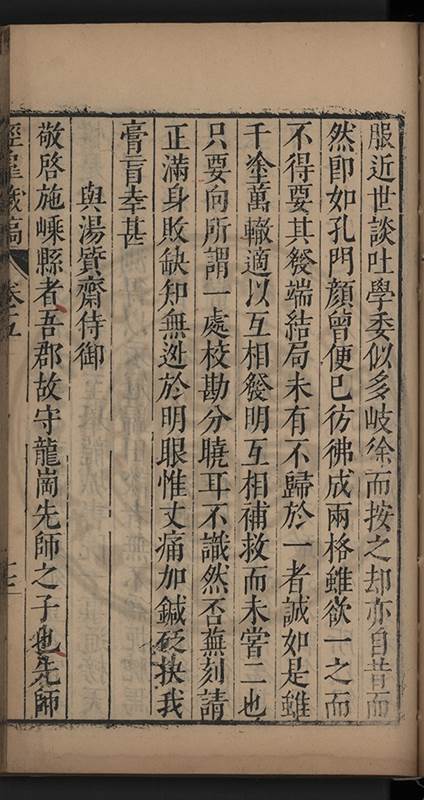 服近世談吐學委似多岐徐而按之却亦自昔而
然即如孔門顏曾便已彷彿成兩格雖欲一之而
不得要其發端結局未有不歸於一者誠如是雖
千塗萬轍適以互相發明互相補救而未嘗二也
只要向所謂一處校勘分曉耳不識然否蕪刻請
正滿身敗缺知無迯於明眼惟丈痛加鍼砭抉我
膏肓幸甚
與湯質齋侍御
敬啓施嵊縣者吾郡故守龍崗先師之子也先師
涇臯藏稿 卷五